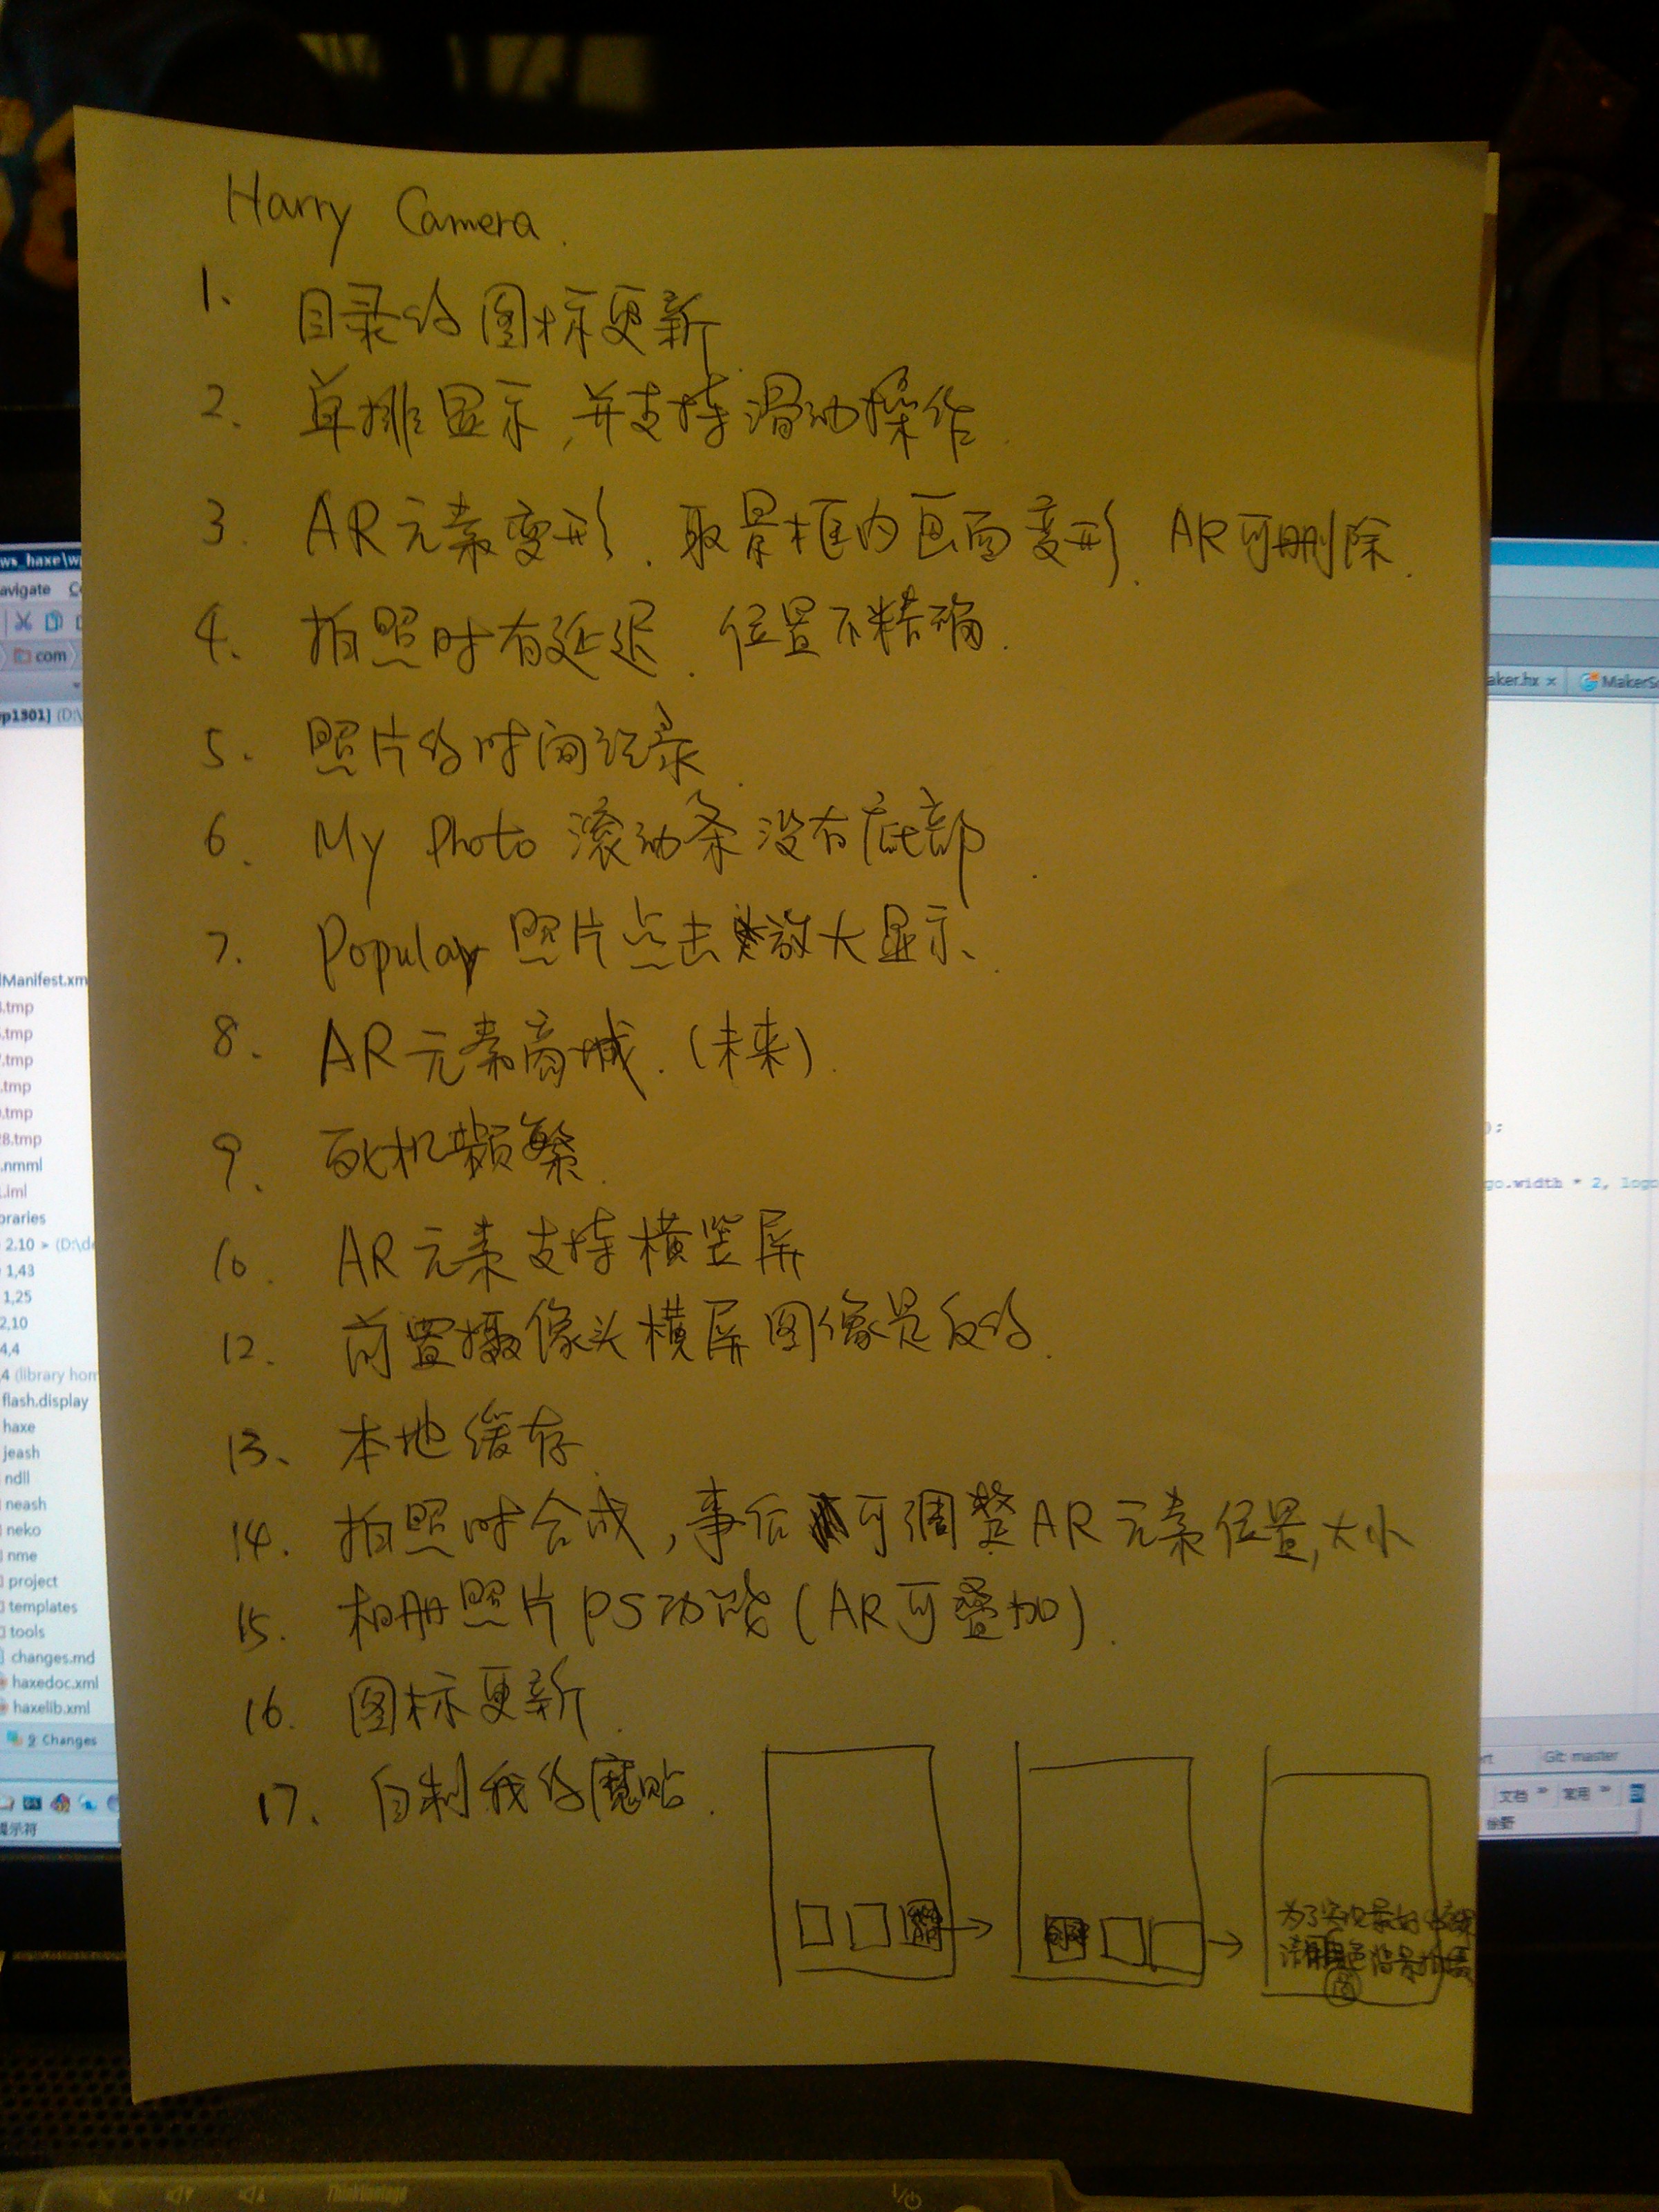 Harry Camera.
1. 目录的图标更新
2. 单排显示,并支持滑动操作.
3. AR元素变形. 取景框内画面变形. AR可删除.
4. 拍照时有延迟. 位置不精确.
5. 照片的时间记录.
6. My Photo 滚动条没有底部.
7. Popular 照片点击放大显示.
8. AR元素商城.(未来).
9. 死机频繁.
10. AR元素支持横竖屏
12. 前置摄像头横屏图像是反的.
13. 本地缓存.
14. 拍照时合成,事后可调整AR元素位置,大小
15. 相册照片PS功能(AR可叠加).
16. 图标更新.
17. 自制我的魔贴.
为了实现最好的效果
请用 色背景拍摄
ws_haxe\w
avigate
com
p1301] (D:\
Manifest.xm
.tmp
.tmp
.tmp
.tmp
.tmp
28.tmp
.nmml
.iml
braries
2.10 > (D:\de
1,43
1,25
2,10
4,4
4 (library hom
flash.display
haxe
jeash
ndll
neash
neko
nme
project
templates
tools
changes.md
haxedoc.xml
haxelib.xml
9 Changes
提示符
aker.hx ×
MakerSc
);
go.width * 2, logo
rt
Git: master
文档 »
常用 »
ThinkVantage